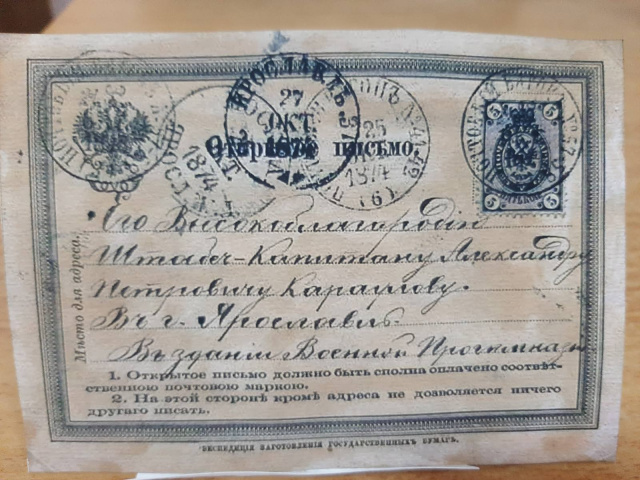 ЯРОСЛАВЛЬ
27
ОКТ
1874
25
1874
(6)
1874
ПОЧТОВЫЙ ВАГОНЪ
5 5
5 5
Открытое письмо.
Мѣсто для адреса:
Его Высокоблагородію
Штабсъ-Капитану Александру
Петровичу Караулову.
Въ г. Ярославль.
Въ зданіи Военной Прогимназіи
1. Открытое письмо должно быть сполна оплачено соотвѣт-
ственною почтовою маркою.
2. На этой сторонѣ кромѣ адреса не дозволяется ничего
другаго писать.
ЭКСПЕДИЦІЯ ЗАГОТОВЛЕНІЯ ГОСУДАРСТВЕННЫХЪ БУМАГЪ.